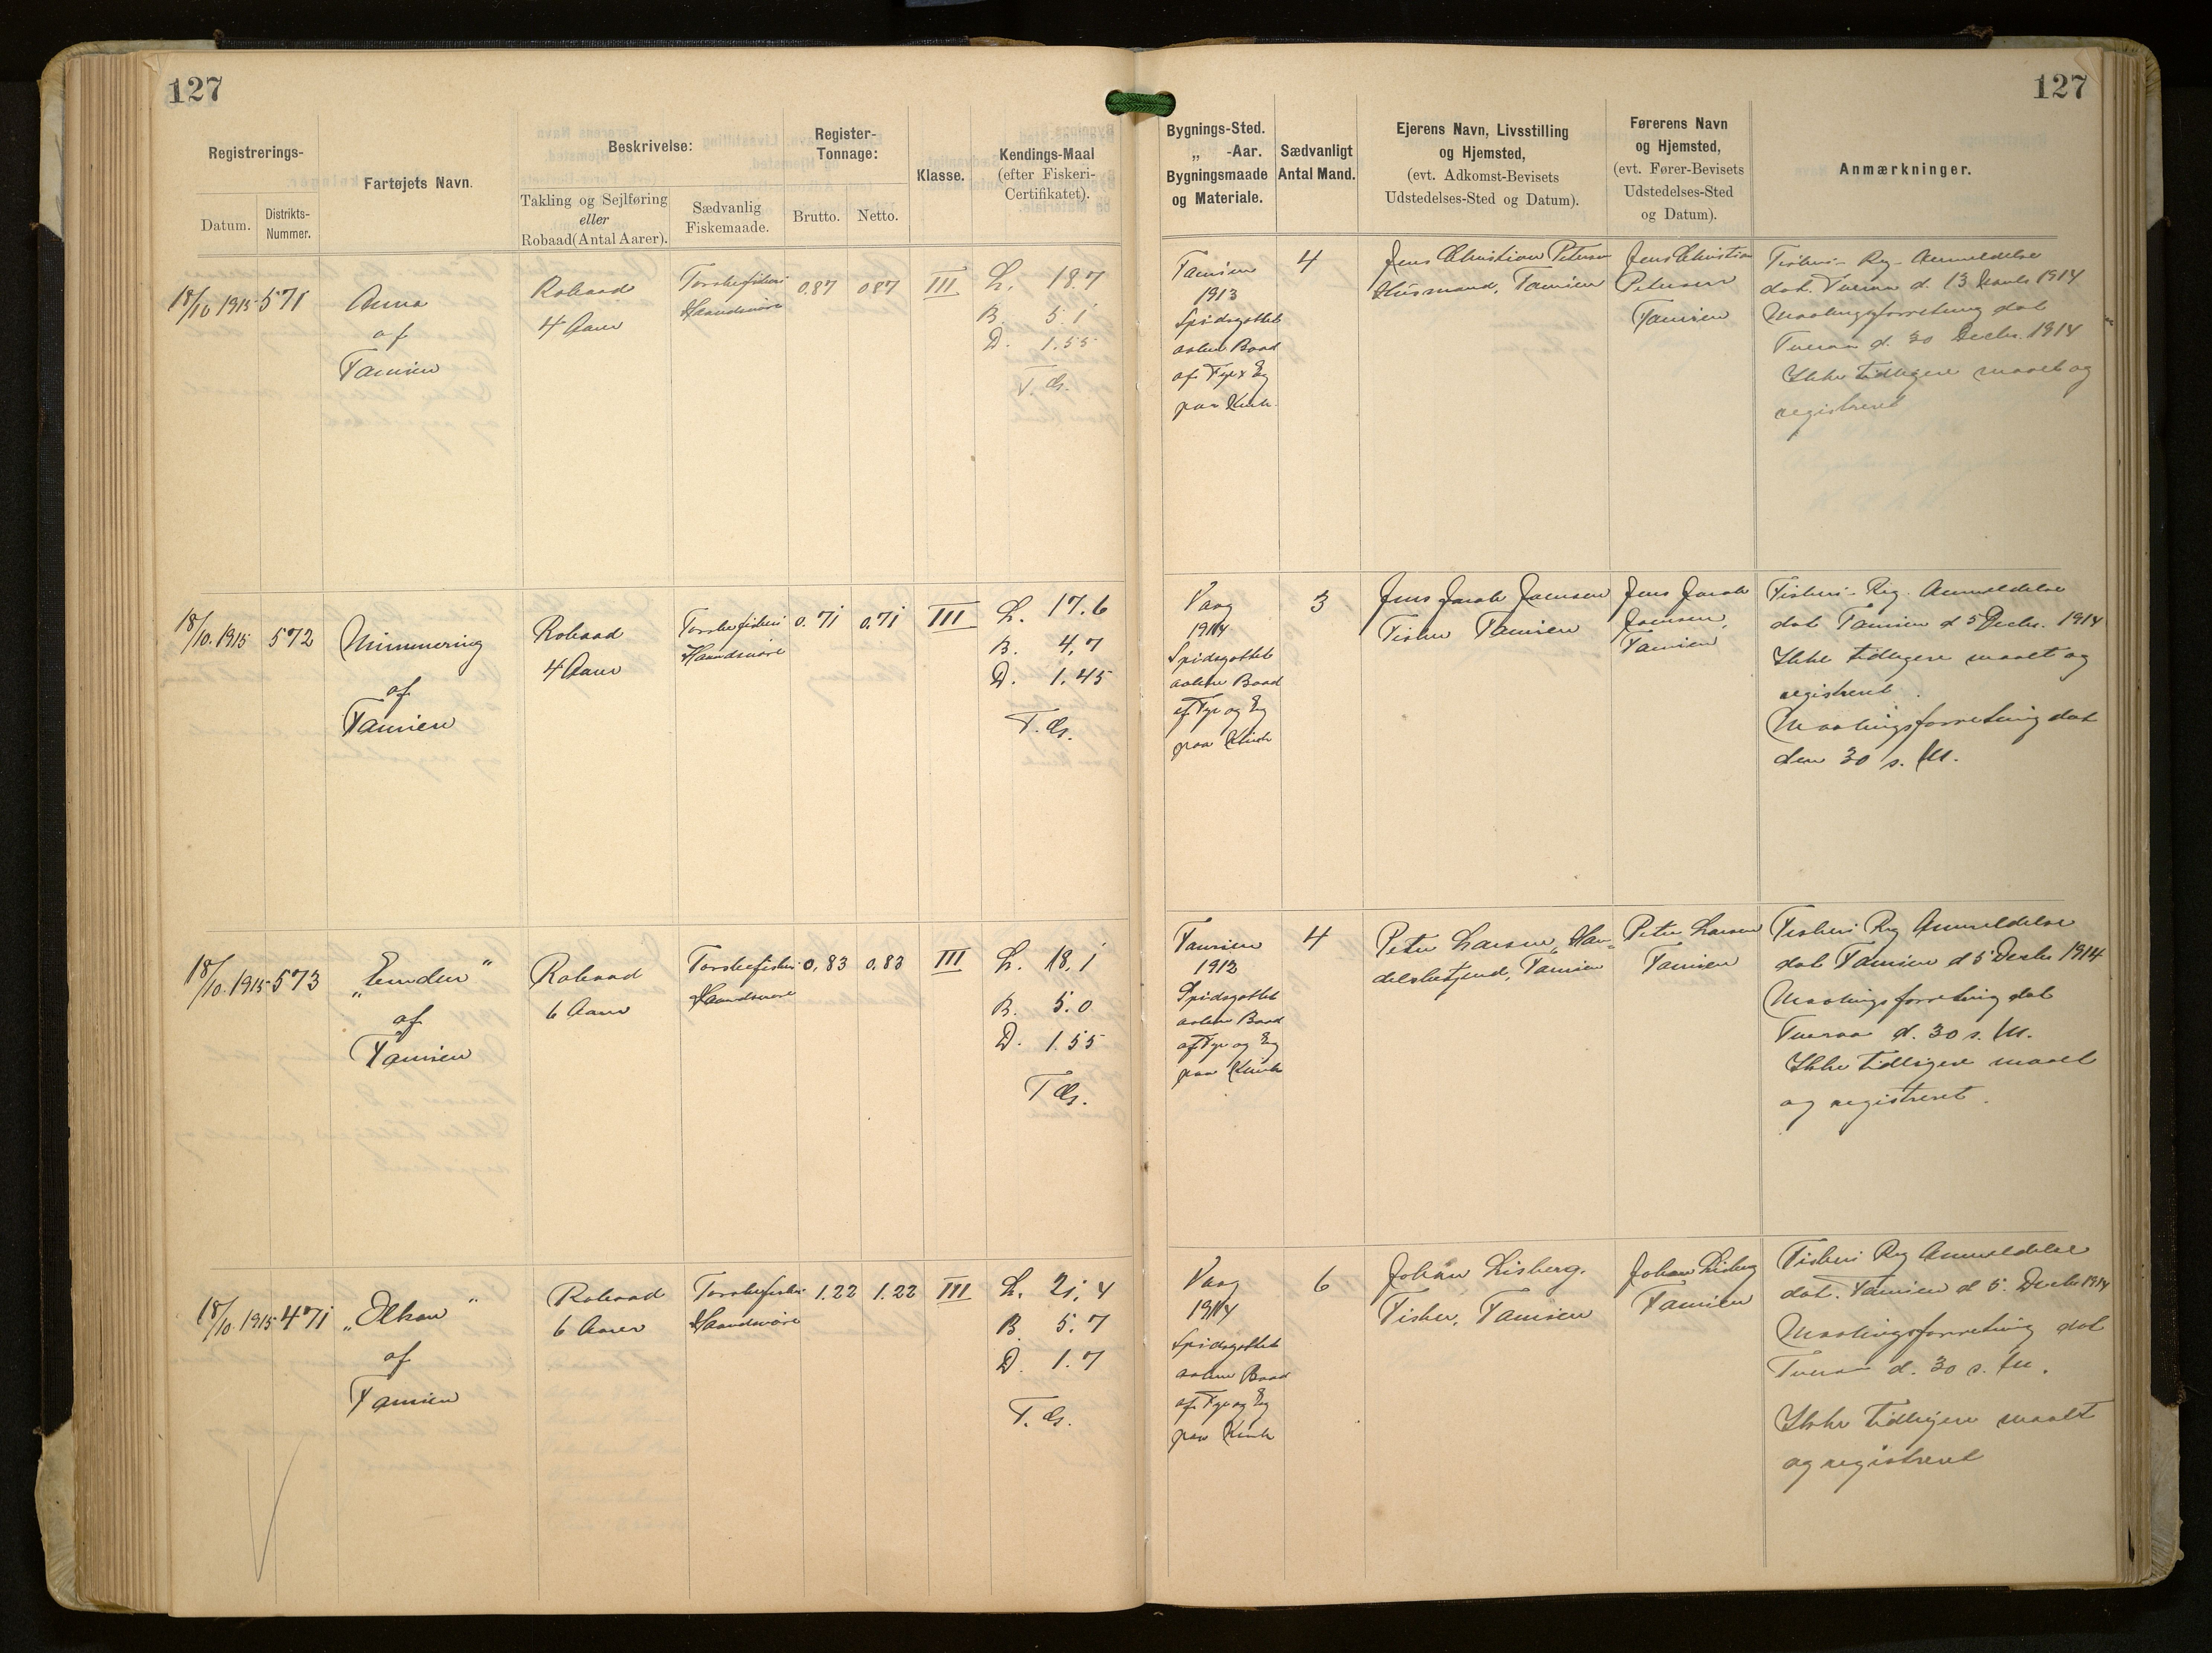 127
127
Registrerings-
Datum.
Distrikts-
Nummer.
Fartøjets Navn.
Beskrivelse:
Takling og Sejlføring
eller
Robaad(Antal Aarer).
Sædvanlig
Fiskemaade.
Register-
Tonnage:
Brutto.
Netto.
Klasse.
Kendings-Maal
(efter Fiskeri-
Certifikatet).
Bygnings-Sted.
„ -Aar.
Bygningsmaade
og Materiale.
Sædvanligt
Antal Mand.
Ejerens Navn, Livsstilling
og Hjemsted,
(evt. Adkomst-Bevisets
Udstedelses-Sted og Datum).
Førerens Navn
og Hjemsted,
(evt. Fører-Bevisets
Udstedelses-Sted
og Datum).
Anmærkninger.
18/10 1915
571
Anna
af
Famien
Robaad
4 Aarer
Torskefiskeri
Haandsnøre
0.87
0.87
III
L. 18.7
B. 5.1
D. 1.55
Famien
1913
Spidsgattet
aaben Baad
af Fyr & Eg
paa Kink
4
Jens Christian Petersen
Husmand, Famien
Jens Christian
Petersen
Famien
Fiskeri-Reg. Anmeldelse
dat. Tveraa d. 13 1914
Maalingsforretning dat
Tveraa d. 30 Decbr. 1914
Ikke tidligere maalt og
registreret
18/10. 1915
572
af
Famien
Robaad
4 Aarer
Torskefiskeri
Haandsnøre
0.71
0.71
III
L. 17.6
B. 4.7
D. 1.45
Vaag
1914
Spidsgattet
aaben Baad
af Fyr og Eg
paa Kink
3
Jens Jacob Joensen
Fisker Famien
Jens Jacob
Joensen,
Famien
Fiskeri-Reg. Anmeldelse
dat Famien d 5 Decbr. 1914
Ikke tidligere maalt og
registreret.
Maalingsforretning dat
den 30 s. M.
18/10. 1915
573
„Emden"
af
Famien
Robaad
6 Aarer
Torskefiskeri
Haandsnøre
0.83
0.83
III
L. 18.1
B. 5.0
D. 1.55
Famien
1913
Spidsgattet
aaben Baad
af Fyr og Eg
paa Kink
4
Peter Larsen, Han-
delsbetjent, Famien
Peter Larsen
Famien
Fiskeri Reg Anmeldelse
dat Famien d 5 Decbr 1914
Maalingsforretning dat
Tveraa d. 30 s. M.
Ikke tidligere maalt
og registreret.
18/10. 1915
471
af
Famien
Robaad
6 Aarer
Torskefiskeri
Haandsnøre
1.22
1.22
III
L. 21.4
B. 5.7
D. 1.7
Vaag
1914
Spidsgattet
aaben Baad
af Fyr og Eg
paa Kink
6
Johan Lisberg.
Fisker, Famien
Johan Lisberg
Famien
Fiskeri Reg Anmeldelse
dat. Famien d 5. Decbr 1914
Maalingsforretning dat
Tveraa d. 30 s. M.
Ikke tidligere maalt
og registreret